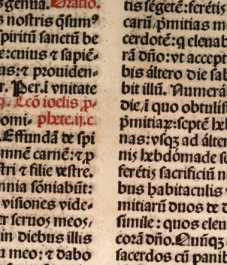 geniua. Oratio.
nostris q̄sum⁹
spiritū sanctū be
e: cuius ⁊ sapiē-
as: ⁊ prouiden-
r. Per. ī vnitate
Lc̄o ioelis p̄-
omi- phete. ij. c.
Effundā de spi
mnē carnē: ⁊ p̄
stri ⁊ filie vestre.
mnia sōniabūt:
visiones vide-
er seruos meos:
in diebus illis
u meo: ⁊ dabo
tis segetē: ferētis
carū p̄mitias m
cerdotē: q eleuab
rā dn̄o: vt accept
bis altero die sab
bit illū. Numera
die, ī quo obtulis
p̄mitiaꝝ: septē he
nas: vsqꝫ ad altr̄
nis hebdomade s
ferētis sacrificiū n
bus habitaculis v
mitiarū duos de d
simile: quos elen
corā dn̄o. Cūqꝫ
sacerdos cū panib